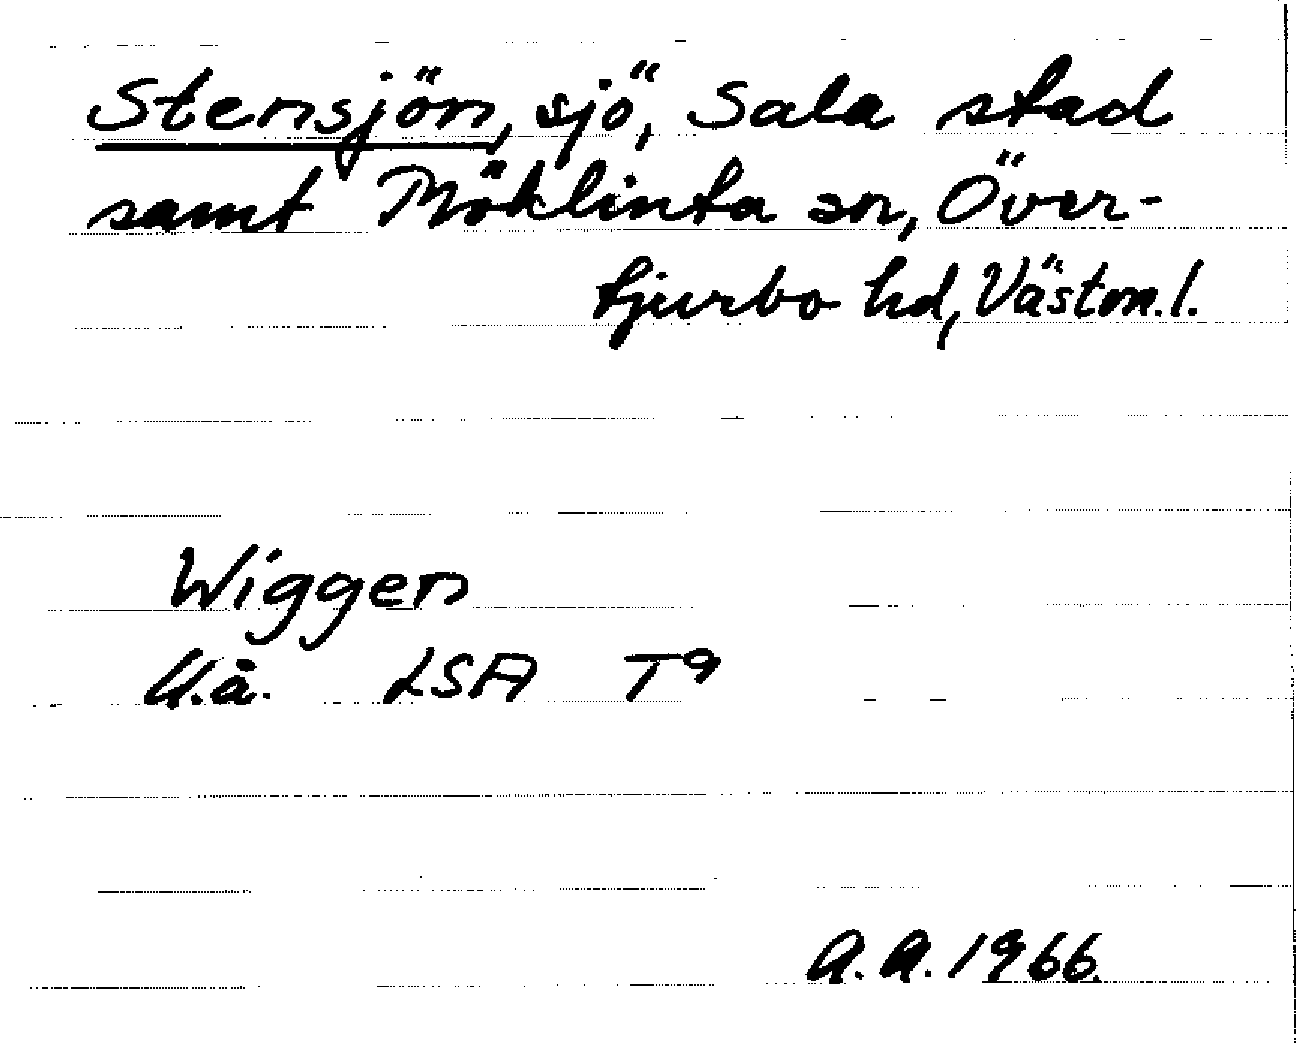 Stensjön, sjö, Sala stad
samt Möklinta sn, Över-
tjurbo hd, Västm.l.
Wiggen
U.å. LSA T9
A.A. 1966.